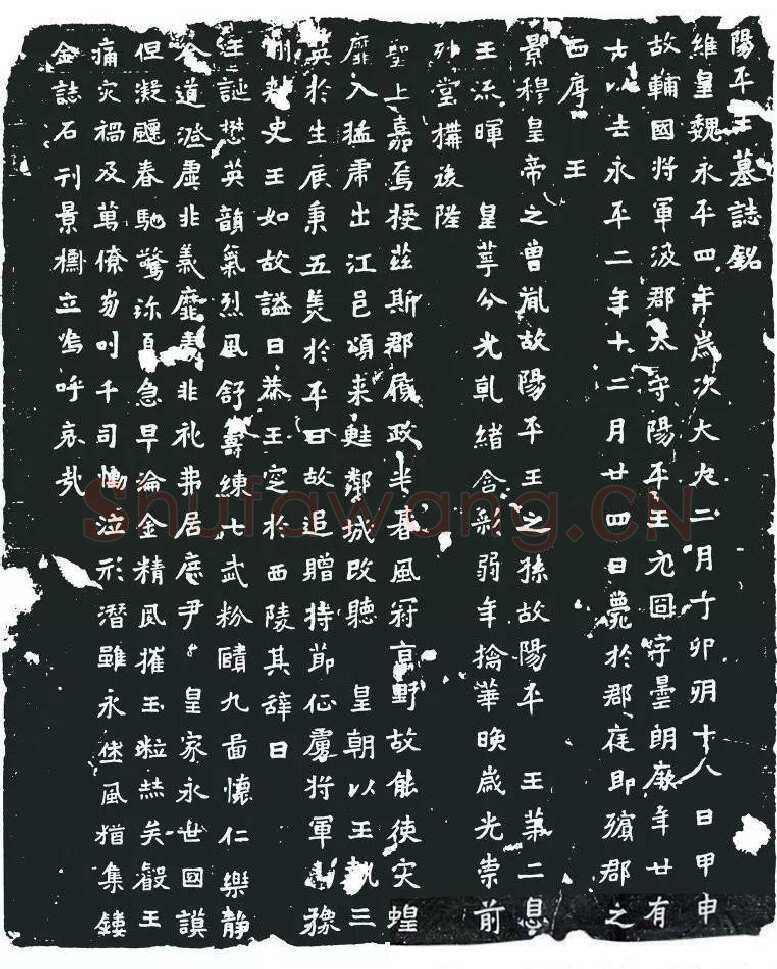 陽平王墓誌銘
維皇魏永平四年歲次大火二月丁卯朔十八日甲申
故輔國將軍汲郡太守陽平王元囧字曇朗厥年廿有
六以去永平二年十二月廿四日薨於郡庭即殯郡之
西序 王
景穆皇帝之曾胤故陽平王之孫故陽平 王第二息
王流暉 皇萼分光軋緒含彩弱年摛華晚歲光崇前
烈堂構後陞
聖上嘉焉授茲斯郡履政半朞風冠高野故能使灾蝗
靡入猛虎出江邑頌来鮭鄰城改聽 皇朝以王執三
英於生辰秉五美於平日故追贈持節征虜将軍 豫
州刺史王如故謚曰恭王空於西陵其辞曰
王誕懋英韻氣烈風舒壽練七武粉賾九畐懷仁樂靜
含道澄虛非義靡 非礼弗居庶尹 皇家永世國謨
但凝飃春馳驚 夏急早淪金精風摧玉粒 矣叡王
痛灾禍及萬僚 叫千司慟泣形潛雖永 風猶集鏤
金誌石刊景檦立嗚呼哀哉
Shufawang.CN